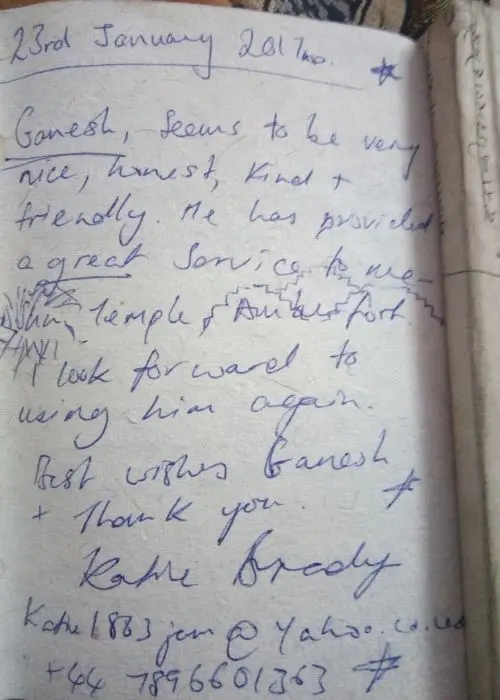 23rd January 2017
Ganesh, Seems to be very
nice, honest, kind +
friendly. He has provided
a great Service to me-
Temple, Amber fort.
I look forward to
using him again.
Best wishes Ganesh
+ Thank you.
Katie Brady
Katie1883jem@Yahoo.co.
+44 7896601363